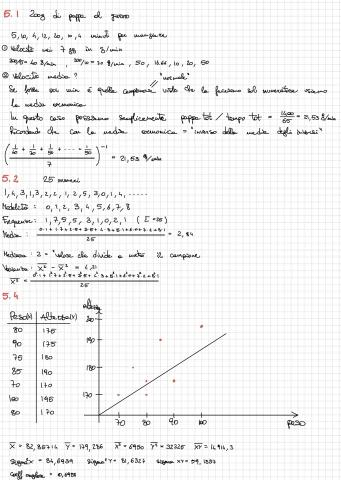 5.1 200g di pappa al giorno
5, 10, 4, 12, 20, 10, 4 minuti per mangiare
① Velocità nei 7 gg in g/min
200/5 = 40 g/min , 200/10 = 20 g/min , 50, 16.66, 10, 20, 50
② velocità media ?
"normale"
Se fosse per min è quella campionaria visto che la frazione sul numeratore usiamo
la media armonica
In questo caso possiamo semplicemente pappa tot / tempo tot = 1400/65 = 21,53 g/min
Ricordando che con la media armonica = "inverso della media degli inversi"
(1/40 + 1/20 + 1/50 + ... + 1/50 / 7)^-1 = 21,53 g/min
5.2 25 numeri
1, 4, 3, 1, 3, 2, 2, 1, 2, 5, 3, 0, 1, 4, .....
Modalità : 0, 1, 2, 3, 4, 5, 6, 7, 8
Frequenze : 1, 7, 5, 5, 3, 1, 0, 2, 1 (Σ=25)
Media : 25 = 2,84
Mediana : 2 = "valore che divide a metà il campione
Varianza :
25
5.4
Peso(X) Altezza(Y)
80 175
90 175
75 180
85 190
70 170
100 195
80 170
Altezza
200
190
180
170
70 80 90 100
peso
X = 82,85714 Y = 179,286 X² = 6950 Y² = 32225 XY = 14914,3
Sigma²X = 84,6939 Sigma²Y = 81,6327 Sigma XY = 59,1837
Coeff angolare = 0,6988